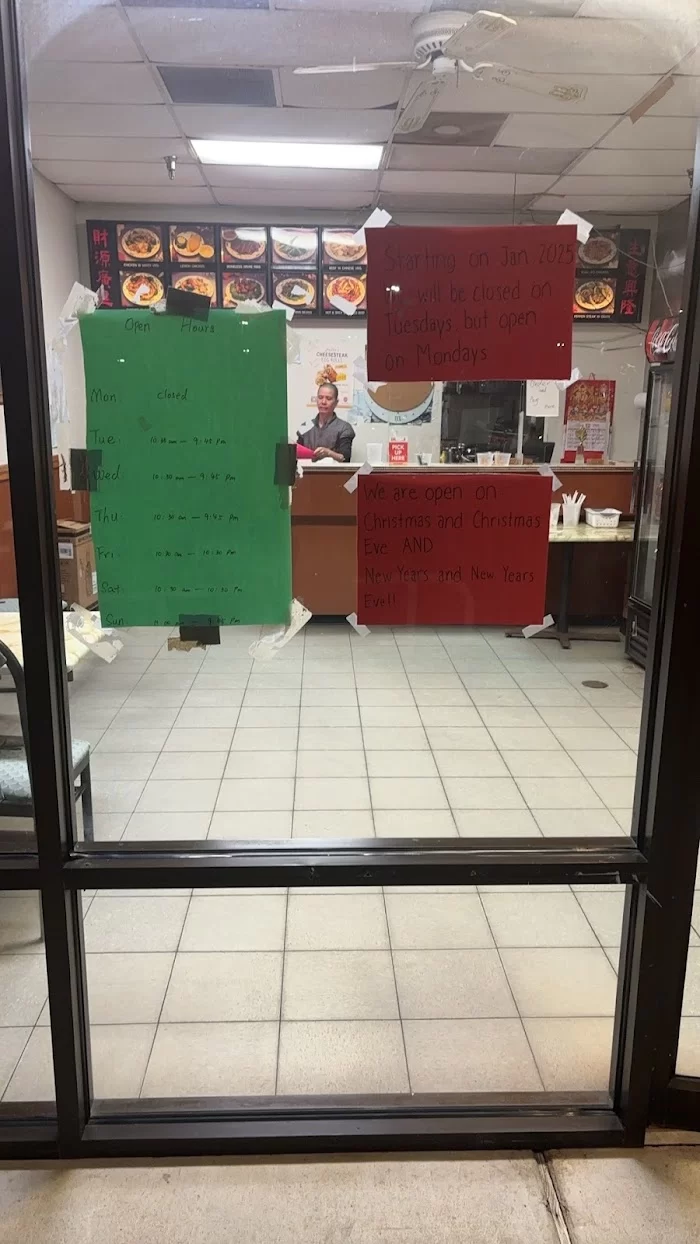 Open Hours
Mon: closed
Tue: 10:30 am – 9:45 pm
Wed: 10:30 am – 9:45 pm
Thu: 10:30 am – 9:45 pm
Fri: 10:30 am – 10:30 pm
Sat: 10:30 am – 10:30 pm
Sun:
Starting on Jan 2025
will be closed on
Tuesdays but open
on Mondays
We are open on
Christmas and Christmas
Eve AND
New Years and New Years
Eve!!
財源廣
興隆
CHEESESTEAK
PICK
UP
HERE
Coca